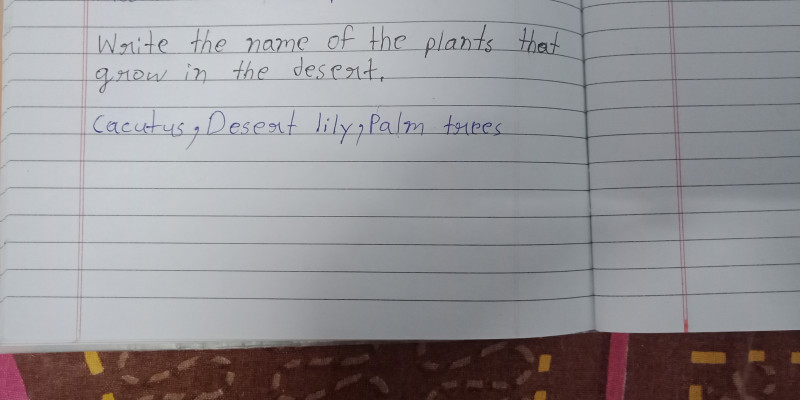 Write the name of the plants that
grow in the desert.
Cacutus, Desert lily, Palm trees